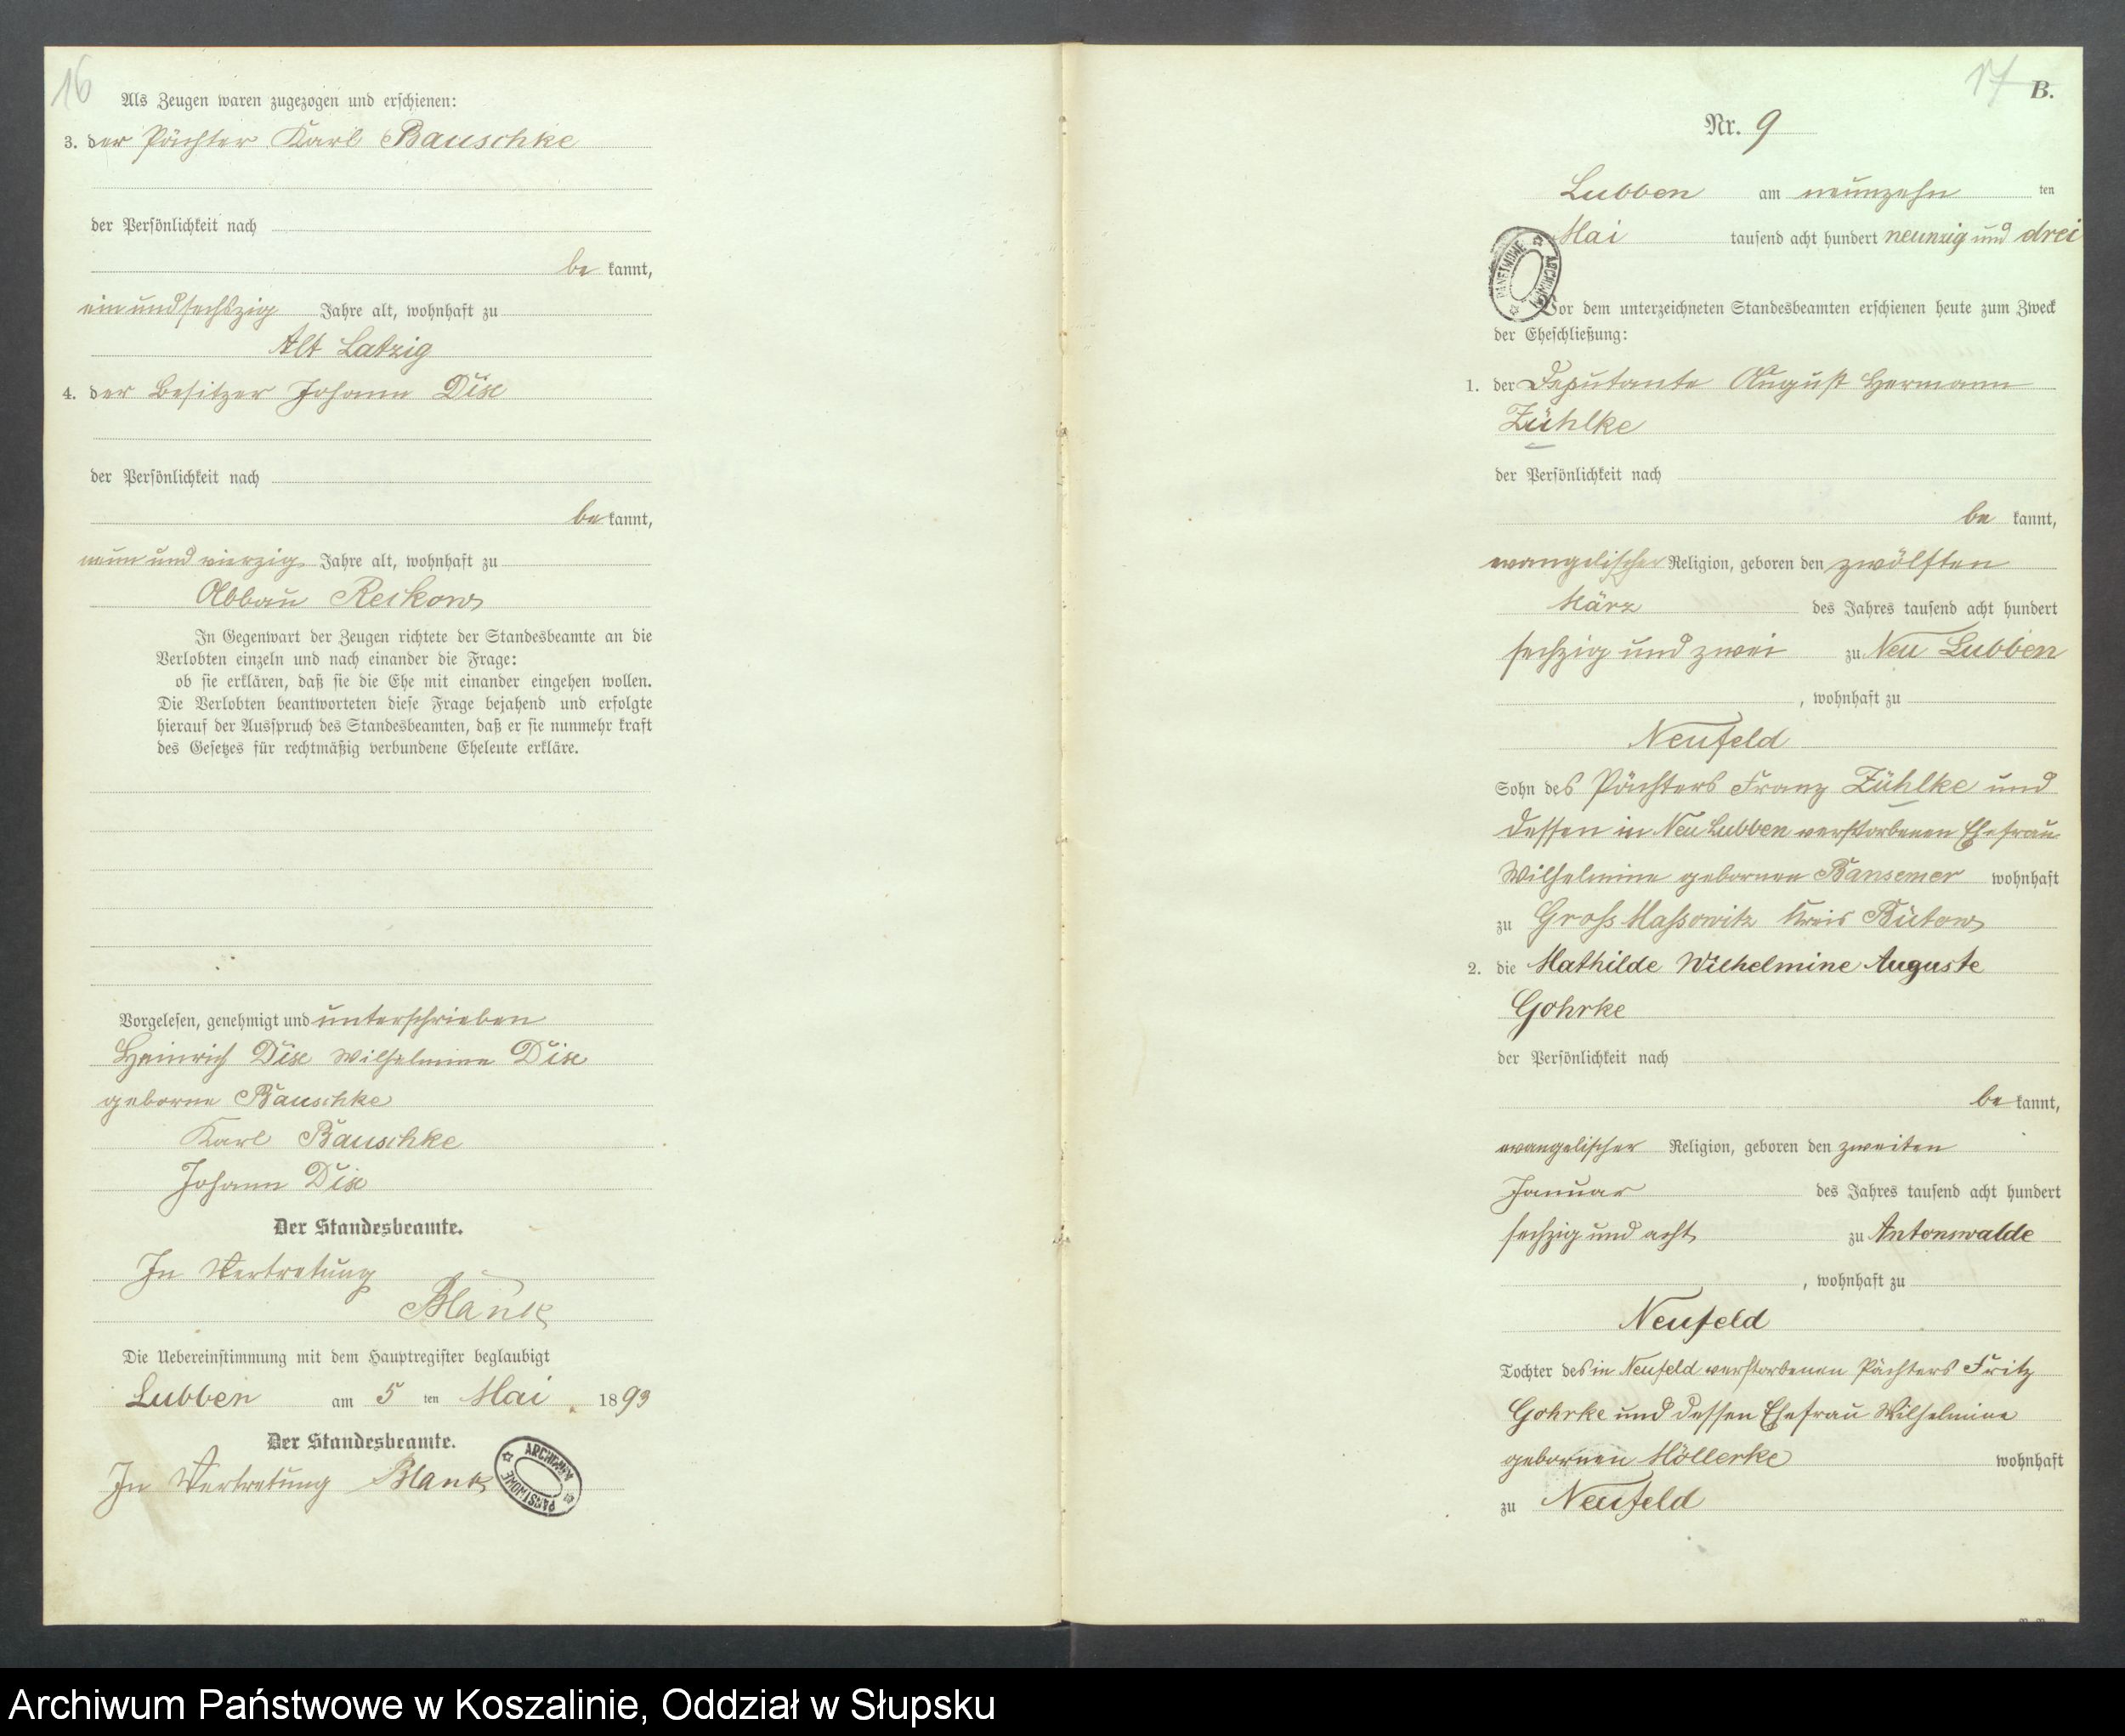 16
Als Zeugen waren zugezogen und erschienen:
3. der Pächter Karl Bauschke
der Persönlichkeit nach
be kannt,
ein und sechszig Jahre alt, wohnhaft zu
Alt Latzig
4. der Besitzer Johann
der Persönlichkeit nach
be kannt,
neun und vierzig Jahre alt, wohnhaft zu
Abbau Reckow
In Gegenwart der Zeugen richtete der Standesbeamte an die
Verlobten einzeln und nach einander die Frage:
ob sie erklären, daß sie die Ehe mit einander eingehen wollen.
Die Verlobten beantworteten diese Frage bejahend und erfolgte
hierauf der Ausspruch des Standesbeamten, daß er sie nunmehr kraft
des Gesetzes für rechtmäßig verbundene Eheleute erkläre.
Vorgelesen, genehmigt und unterschrieben
Heinrich Wilhelmine
geborne Bauschke
Karl Bauschke
Johann
Der Standesbeamte.
In Vertretung
Blank
Die Uebereinstimmung mit dem Hauptregister beglaubigt
Lubben am 5 ten Mai 1893
Der Standesbeamte.
In Vertretung Blank
ARCHIWUM PAŃSTWOWE
17 B.
Nr. 9
Lubben am neunzehn ten
Mai tausend acht hundert neunzig und drei
ARCHIWUM PAŃSTWOWE
Vor dem unterzeichneten Standesbeamten erschienen heute zum Zweck
der Eheschließung:
1. der Deputante August Hermann
Zühlke
der Persönlichkeit nach
be kannt,
evangelischer Religion, geboren den zwölften
März des Jahres tausend acht hundert
sechzig und zwei zu Neu Lubben
, wohnhaft zu
Neufeld
Sohn des Pächters Franz Zühlke und
dessen in Neu Lubben verstorbenen Ehefrau
Wilhelmine gebornen Bansemer wohnhaft
zu Gross Massowitz Kreis Bütow
2. die Mathilde Wilhelmine Auguste
Gohrke
der Persönlichkeit nach
be kannt,
evangelischer Religion, geboren den zweiten
Januar des Jahres tausend acht hundert
sechzig und acht zu Antonswalde
, wohnhaft zu
Neufeld
Tochter des in Neufeld verstorbenen Pächters Fritz
Gohrke und dessen Ehefrau Wilhelmine
gebornen Möllerke wohnhaft
zu Neufeld
Archiwum Państwowe w Koszalinie, Oddział w Słupsku